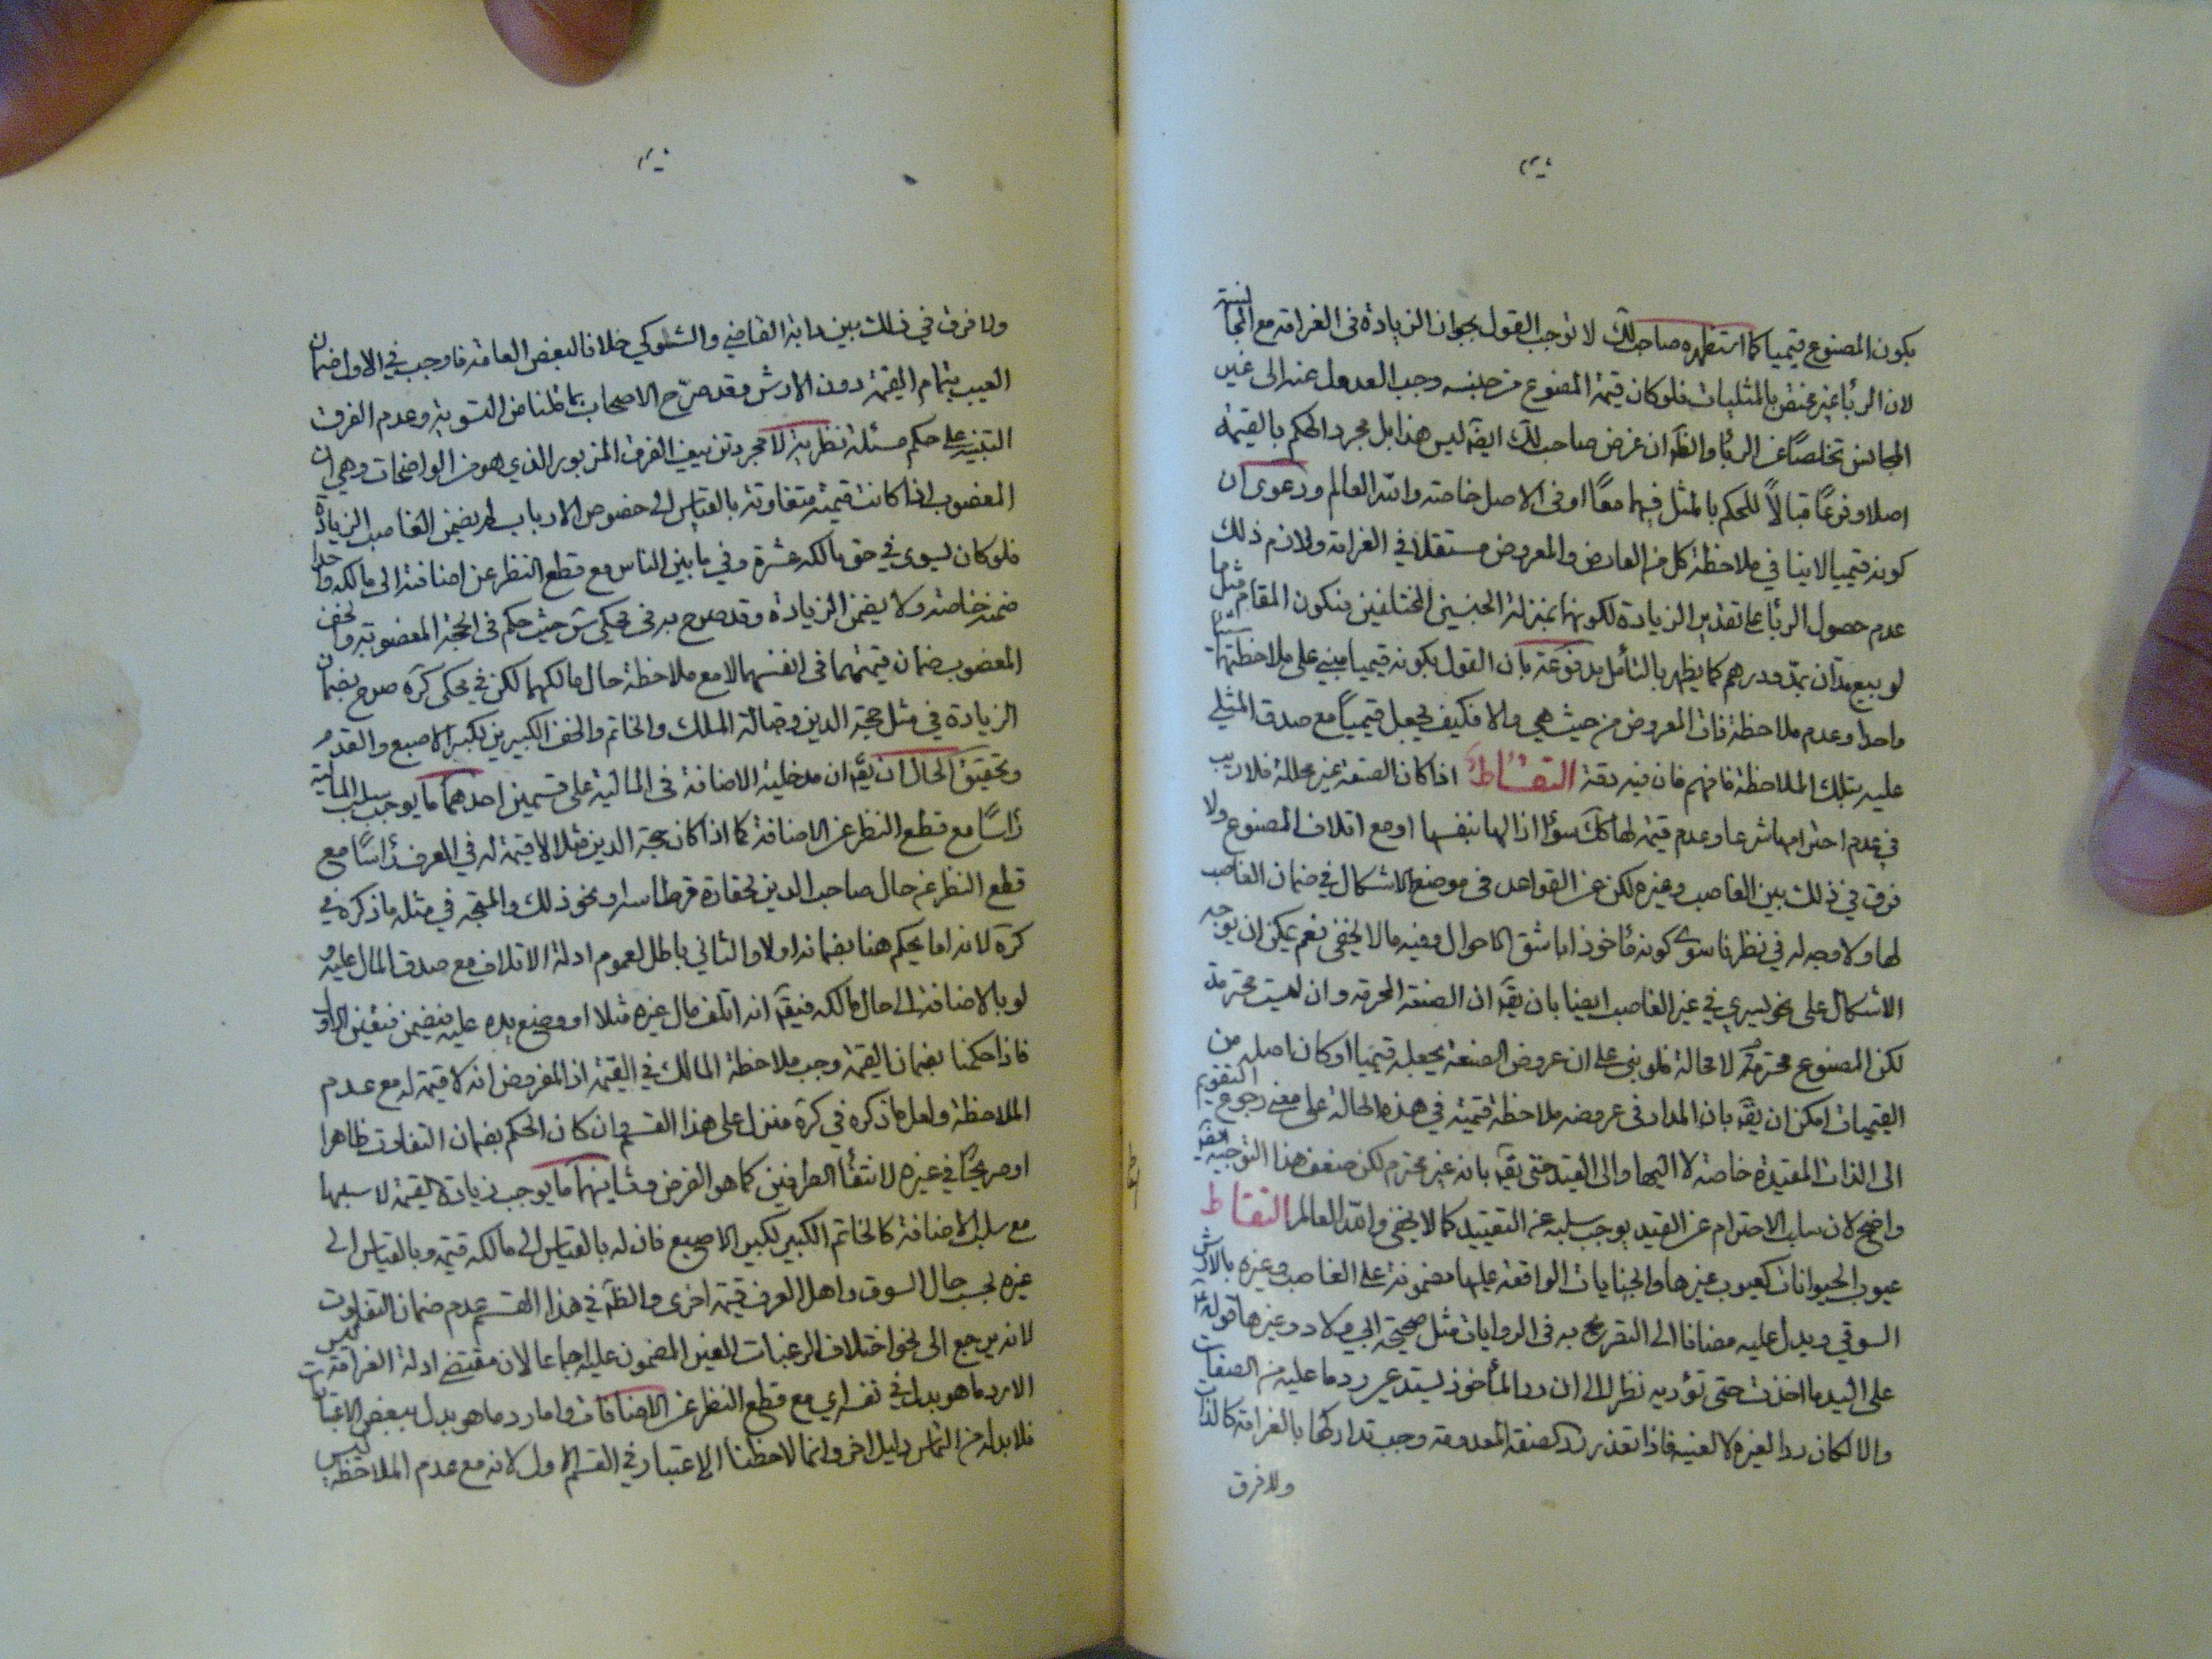 يكون المصنوع قيميا كما استظهره صاحب لك لا توجب القول بجواز الزيادة فى الغرامة مع المجانسة
لان الربا غير مختص بالمثليات فلو كان قيمة المصنوع من جنسه وجب العدول عنه الى غير
المجانس تخلصًا عن الربا والظ ان غرض صاحب لك ايضا ليس هذا بل مجرد الحكم بالقيمة
اصلا وفرعًا قبالاً للحكم بالمثل فيهما معًا او فى الاصل خاصة والله العالم ودعوى ان
كونه قيميا لا ينافي ملاحظة كل من العارض والمعروض مستقلا في الغرامة ولازم ذلك
عدم حصول الربا على تقدير الزيادة لكونهما بمنزلة الجنسين المختلفين فيكون المقام مثل ما
لو بيع مدّان بمدّ ودرهم كما يظهر بالتأمل مدفوعة بان القول بكونه قيميا مبني على ملاحظتهما شيئا
واحدا وعدم ملاحظة ذات المعروض من حيث هي والا فكيف يجعل قيمياً مع صدق المثلي
عليه بتلك الملاحظة فافهم فان فيه دقة التقاط اذا كان الصنعة غير محللة فلا ريب
في عدم احترامها شرعا وعدم قيمة لها كك سواء ازالها بنفسها او مع اتلاف المصنوع ولا
فرق في ذلك بين الغاصب وغيره لكن عن القواعد فى موضع الاشكال في ضمان الغاصب
لها ولا وجه له في نظرنا سوى كونه مأخوذا باشق الاحوال وفيه ما لا يخفى نعم يمكن ان يوجه
الاشكال على نحو يسري في غير الغاصب ايضا بان يقم ان الصنعة المحرمة وان ليست محترمة
لكن المصنوع محترم لا محالة فلو بنى على ان عروض الصنعة يجعله قيميا او كان اصله من
القيميات امكن ان يقم بان المدار فى عروضه ملاحظة قيمته في هذه الحالة على معنى رجوع التقويم
الى الذات المقيدة خاصة لا اليها والى القيد حتى يقم بانه غير محترم لكن ضعف هذا التوجيه
واضح لان سلب الاحترام عن القيد يوجب سلبه عن التقييد كما لا يخفى والله العالم التقاط
عيوب الحيوانات كعيوب غيرها والجنايات الواقعة عليها مضمونة على الغاصب وغيره بالارش
السوقي ويدل عليه مضافا الى التصريح به فى الروايات مثل صحيحة ابي ولاد وغيرها قوله
على اليد ما اخذت حتى تؤديه نظرا الى ان رد المأخوذ يستدعي رد ما عليه من الصفات
والا لكان ردا لغيره لا لعينه فاذا تعذر رد الصفة المعدومة وجب تداركها بالغرامة كالذات
ولا فرق
ولا فرق في ذلك بين دابة القاضي والشوكي خلافا لبعض العامة فاوجب في الاول ضمان
العيب بتمام القيمة دون الارش وقد صرّح الاصحاب بما قلنا من التسوية وعدم الفرق
التنبيه على حكم مسئلة نظرية لا مجرد تزييف الفرق المزبور الذي هو من الواضحات وهي ان
المغصوب اذا كانت قيمته متفاوتة بالقياس الى خصوص الارباب لم يضمن الغاصب الزيادة
فلو كان يسوى في حق مالكه عشرة وفي ما بين الناس مع قطع النظر عن اضافته الى مالكه واحدا
ضمنه خاصة ولا يضمن الزيادة وقد صرح به فى محكي ش حيث حكم فى الحجة المغصوبة والخف
المغصوب ضمان قيمتهما فى انفسهما لا مع ملاحظة حال مالكهما لكن في محكي كره صرح بضمان
الزيادة في مثل حجة الدين وقبالة الملك والخاتم والخف الكبيرين لكبير الاصبع والقدم
وتحقيق الحال ان يقم ان مدخلية الاضافة فى المالية على قسمين احدهما ما يوجب سلب المالية
رأسًا مع قطع النظر عن الاضافة كما اذا كان حجة الدين مثلا لا قيمة له في العرف رأسًا مع
قطع النظر عن حال صاحب الدين لحقارة قرطاسه ونحو ذلك والمتجه في مثله ما ذكره في
كره لانه اما يحكم هنا بضمانه اولا والثاني باطل لعموم ادلة الاتلاف مع صدق المال عليه و
لو بالاضافة الى حال مالكه فيقم انه اتلف مال غيره مثلا او وضع يده عليه فيضمن فتعين الاول
فاذا حكمنا بضمان القيمة وجب ملاحظة المالك في القيمة اذ المفروض انه لا قيمة له مع عدم
الملاحظة ولعل ما ذكره في كره منزل على هذا القسم وان كان الحكم بضمان التفاوت ظاهرا
او صريحًا في غيره لانتفاء الطرفين كما هو الفرض وثانيهما ما يوجب زيادة القيمة لا سلبها
مع سلب الاضافة كالخاتم الكبير لكبير الاصبع فان له بالقياس الى مالكه قيمة وبالقياس الى
غيره بحسب حال السوق واهل العرف قيمة اخرى والظ في هذا القسم عدم ضمان التفاوت
لانه يرجع الى نحو اختلاف الرغبات للعين المضمون عليه اجماعا لان مقتضى ادلة الغرامة ليس
الا رد ما هو بدل في نفسه اي مع قطع النظر عن الاضافات واما رد ما هو بدل ببعض الاعتبارات
فلا بد له من التماس دليل اخر وانما لاحظنا الاعتبار في القسم الاول لانه مع عدم الملاحظة ليس